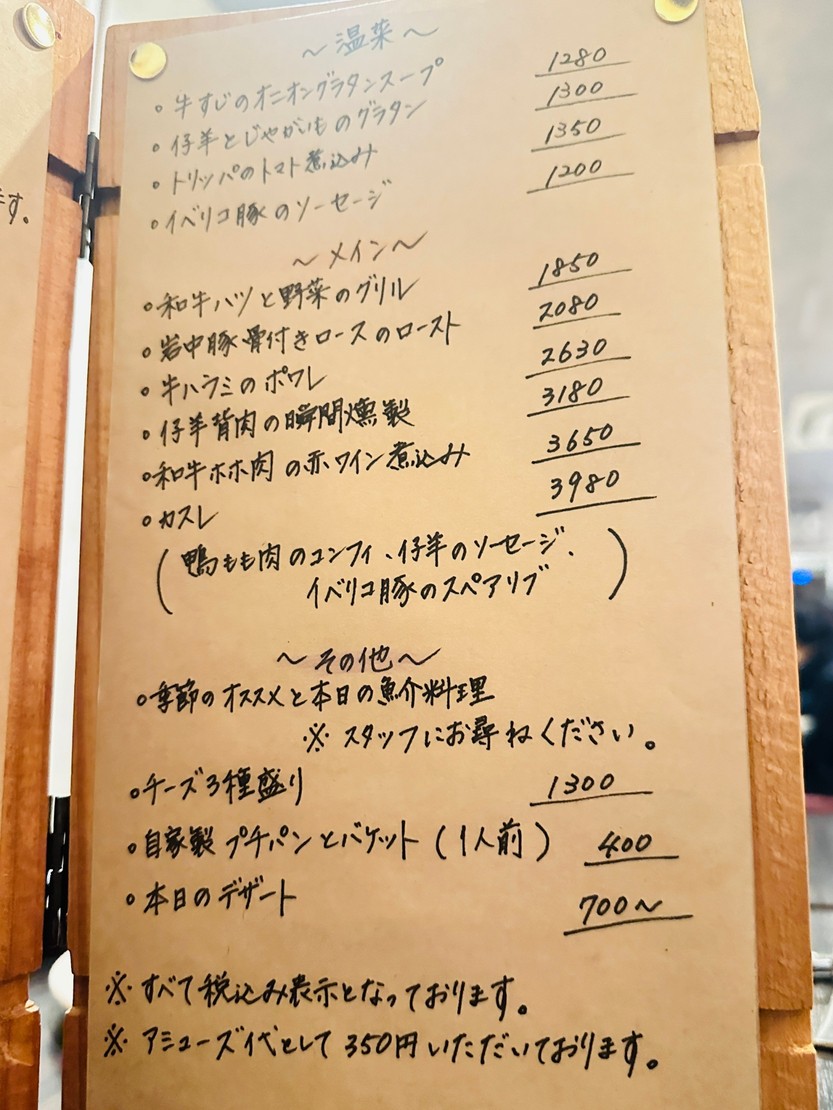 ～温菜～
・牛すじのオニオングラタンスープ 1280
・仔羊とじゃがいものグラタン 1300
・トリッパのトマト煮込み 1350
・イベリコ豚のソーセージ 1200
～メイン～
・和牛ハツと野菜のグリル 1850
・岩中豚骨付きロースのロースト 2080
・牛ハラミのポワレ 2630
・仔羊背肉の瞬間燻製 3180
・和牛ホホ肉の赤ワイン煮込み 3650
・カスレ 3980
(鴨もも肉のコンフィ、仔羊のソーセージ、
イベリコ豚のスペアリブ)
～その他～
・季節のオススメと本日の魚介料理
※スタッフにお尋ねください。
・チーズ3種盛り 1300
・自家製プチパンとバケット(1人前) 400
・本日のデザート 700～
※すべて税込み表示となっております。
※アミューズ代として350円いただいております。
す。